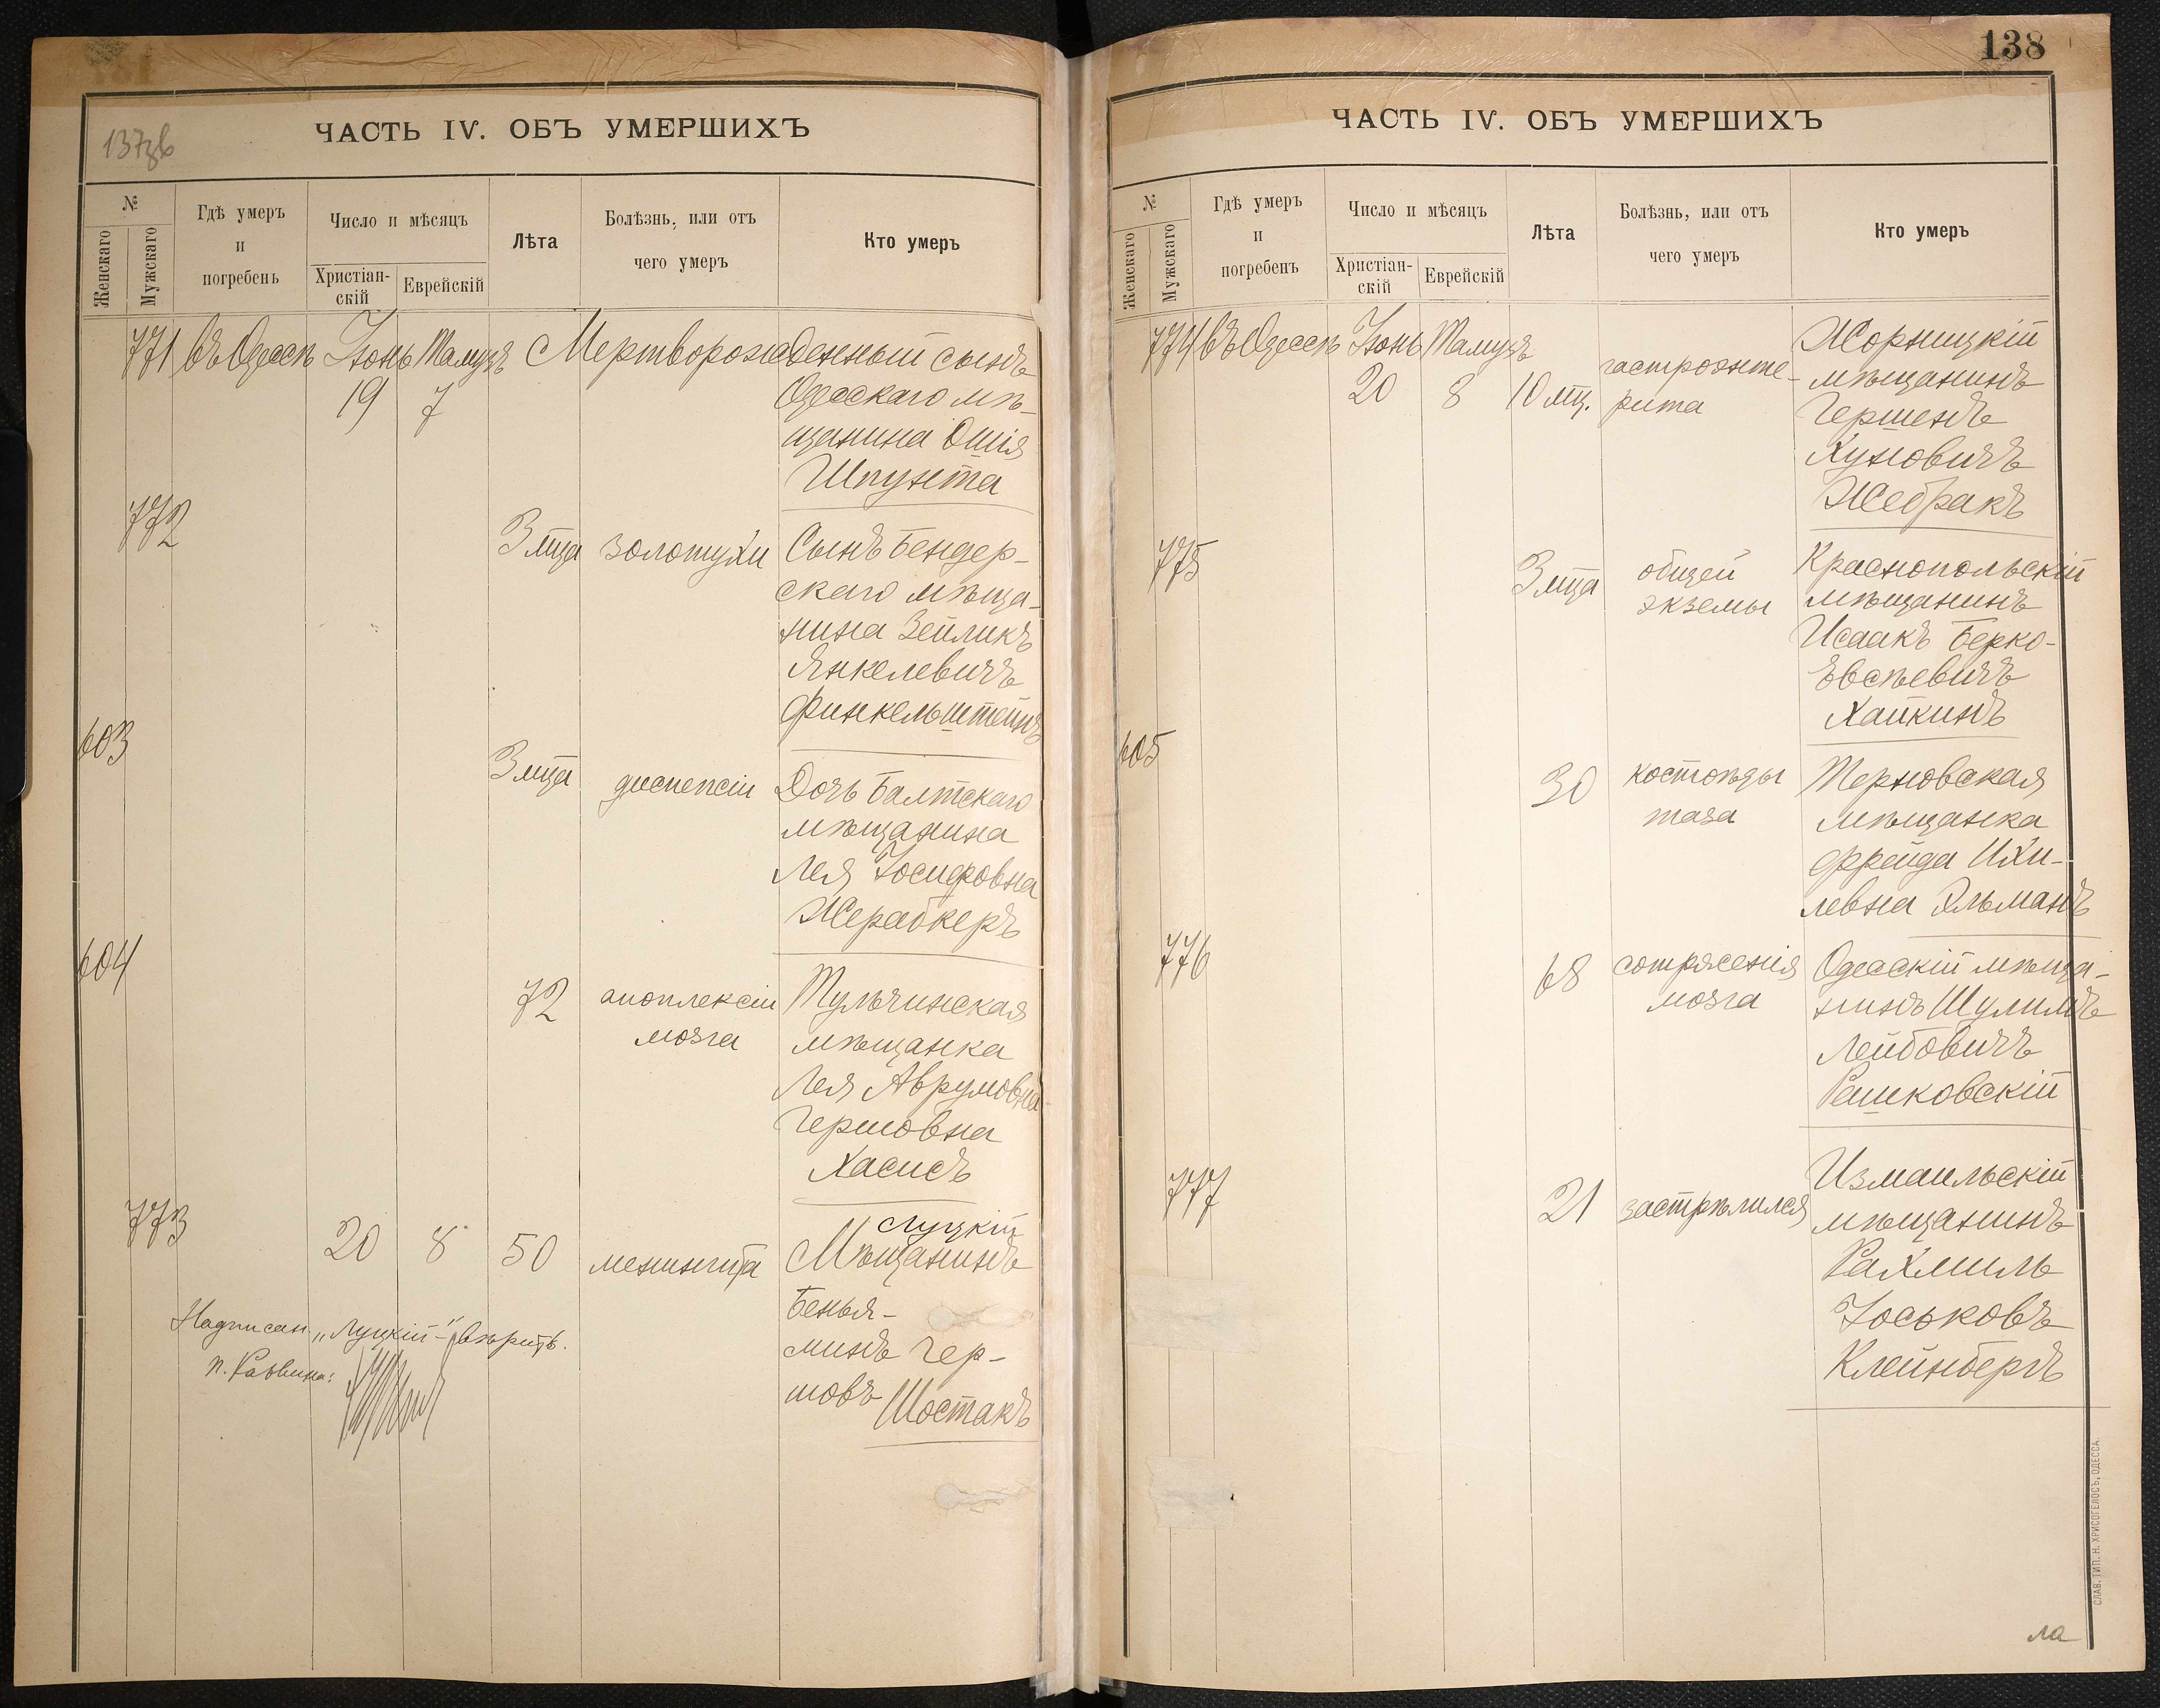 137зв
ЧАСТЬ IV. ОБЪ УМЕРШИХЪ
№
Женскаго
Мужскаго
Гдѣ умеръ
и
погребенъ
Число и мѣсяцъ
Христіан-
скій
Еврейскій
Лѣта
Болѣзнь, или отъ
чего умеръ
Кто умеръ
771 въ Одессѣ Іюнь Тамузъ Мертворожденный сынъ
19 7 Одесскаго мѣ-
щанина Ошія
Шпунта
772
3 мца золотухи Сынъ Бендер-
скаго мѣща-
нина Зейликъ
Янкелевичъ
Финкельштейнъ
603
3 мца диспепсіи Дочь Балтскаго
мѣщанина
Лея Іосифовна
Жерабкеръ
604
72 апоплексіи Тульчинская
мозга мѣщанка
Лея Аврумовна-
Гершовна
Хасисъ
773
Луцкій
20 8 50 менингита Мѣщанинъ
Бенья-
минъ Гер-
шовъ Шостакъ
Надписан. „Луцкій-" вѣрить.
п. Раввина:
138
ЧАСТЬ IV. ОБЪ УМЕРШИХЪ
№
Женскаго
Мужскаго
Гдѣ умеръ
и
погребенъ
Число и мѣсяцъ
Христіан-
скій
Еврейскій
Лѣта
Болѣзнь, или отъ
чего умеръ
Кто умеръ
774 въ Одессѣ Іюнь Тамузъ Жорницкій
20 8 10 мц. гастроэнте- мѣщанинъ
рита Гершенъ
Хуновичъ
Жебракъ
775
3 мца общей Краснопольскій
экземы мѣщанинъ
Исаакъ Берко-
Евсѣевичъ
Хайкинъ
605
30 костоѣды Терновская
таза мѣщанка
Фрейда Ихи-
левна Эльманъ
776
68 сотрясенія Одесскій мѣща-
мозга нинъ Шулимъ
Лейбовичъ
Рашковскій
777
Измаильскій
21 застрѣлился мѣщанинъ
Рахмиль
Іоськовъ
Клейнбергъ
СЛАВ. ТИП. Н. ХРИСОГЕЛОСЪ, ОДЕССА.
ла